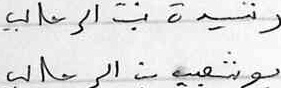 رشيدة بنت الرحالي
بوشعيب بن الرحالي